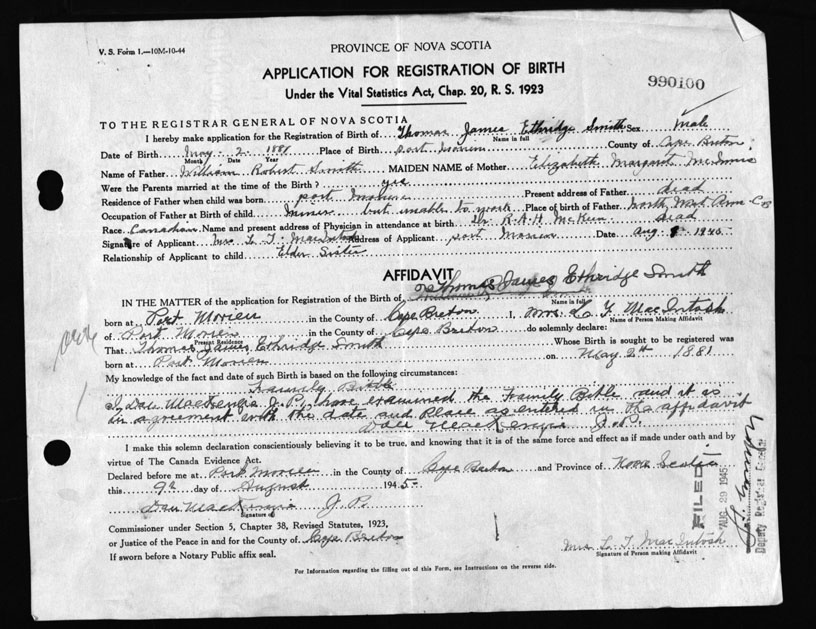 V. S. Form 1.—10M-10-44
PROVINCE OF NOVA SCOTIA
APPLICATION FOR REGISTRATION OF BIRTH
990100
Under the Vital Statistics Act, Chap. 20, R. S. 1923
TO THE REGISTRAR GENERAL OF NOVA SCOTIA
I hereby make application for the Registration of Birth of Thomas James Ethridge Smith Sex Male
Name in full
Date of Birth May 2 1881 Place of Birth Port Morien County of Cape Breton
Month Date Year
Name of Father William Robert Smith MAIDEN NAME of Mother Elizabeth Margaret McInnis
Were the Parents married at the time of the Birth? yes
Residence of Father when child was born Port Morien Present address of Father dead
Occupation of Father at Birth of child Miner but unable to work Place of birth of Father North West Arm C B
Race Canadian Name and present address of Physician in attendance at birth Dr. R. A. H. McKeen dead
Signature of Applicant Mrs L. T. MacIntosh Address of Applicant Port Morien Date Aug 9 1945
Relationship of Applicant to child Elder Sister
AFFIDAVIT
IN THE MATTER of the application for Registration of the Birth of Thomas James Ethridge Smith
Name in full
born at Port Morien in the County of Cape Breton I, Mrs L T MacIntosh
Name of Person Making Affidavit
of Port Morien in the County of Cape Breton do solemnly declare:
Present Residence
That Thomas James Ethridge Smith Whose Birth is sought to be registered was
born at Port Morien on May 2nd 1881
My knowledge of the fact and date of such Birth is based on the following circumstances:
Family Bible
I, Dan MacKenzie J. P. have examined the Family Bible and it is
in agreement with the date and place as entered in the affidavit
Dan MacKenzie J. P.
I make this solemn declaration conscientiously believing it to be true, and knowing that it is of the same force and effect as if made under oath and by
virtue of The Canada Evidence Act.
Declared before me at Port Morien in the County of Cape Breton and Province of Nova Scotia
this 9th day of August 1945
Dan MacKenzie J. P.
Signature of
Commissioner under Section 5, Chapter 38, Revised Statutes, 1923,
or Justice of the Peace in and for the County of Cape Breton
If sworn before a Notary Public affix seal.
Mrs L. T. MacIntosh
Signature of Person making Affidavit
For Information regarding the filling out of this Form, see Instructions on the reverse side.
FILED
AUG 29 1945
Deputy Registrar General